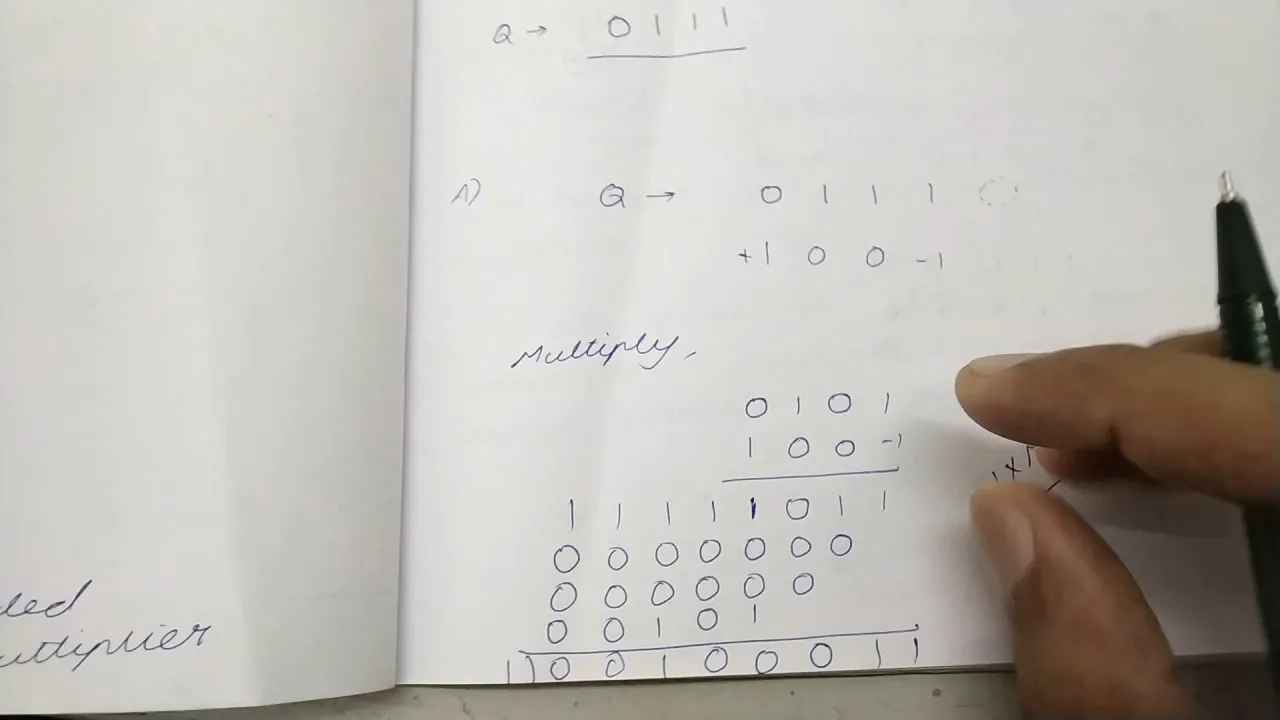 Q → 0 1 1 1
1) Q → 0 1 1 1 0
+1 0 0 -1
Multiply,
0 1 0 1
1 0 0 -1
1 1 1 1 1 0 1 1
0 0 0 0 0 0 0
0 0 0 0 0 0
0 0 1 0 1
1) 0 0 1 0 0 0 1 1